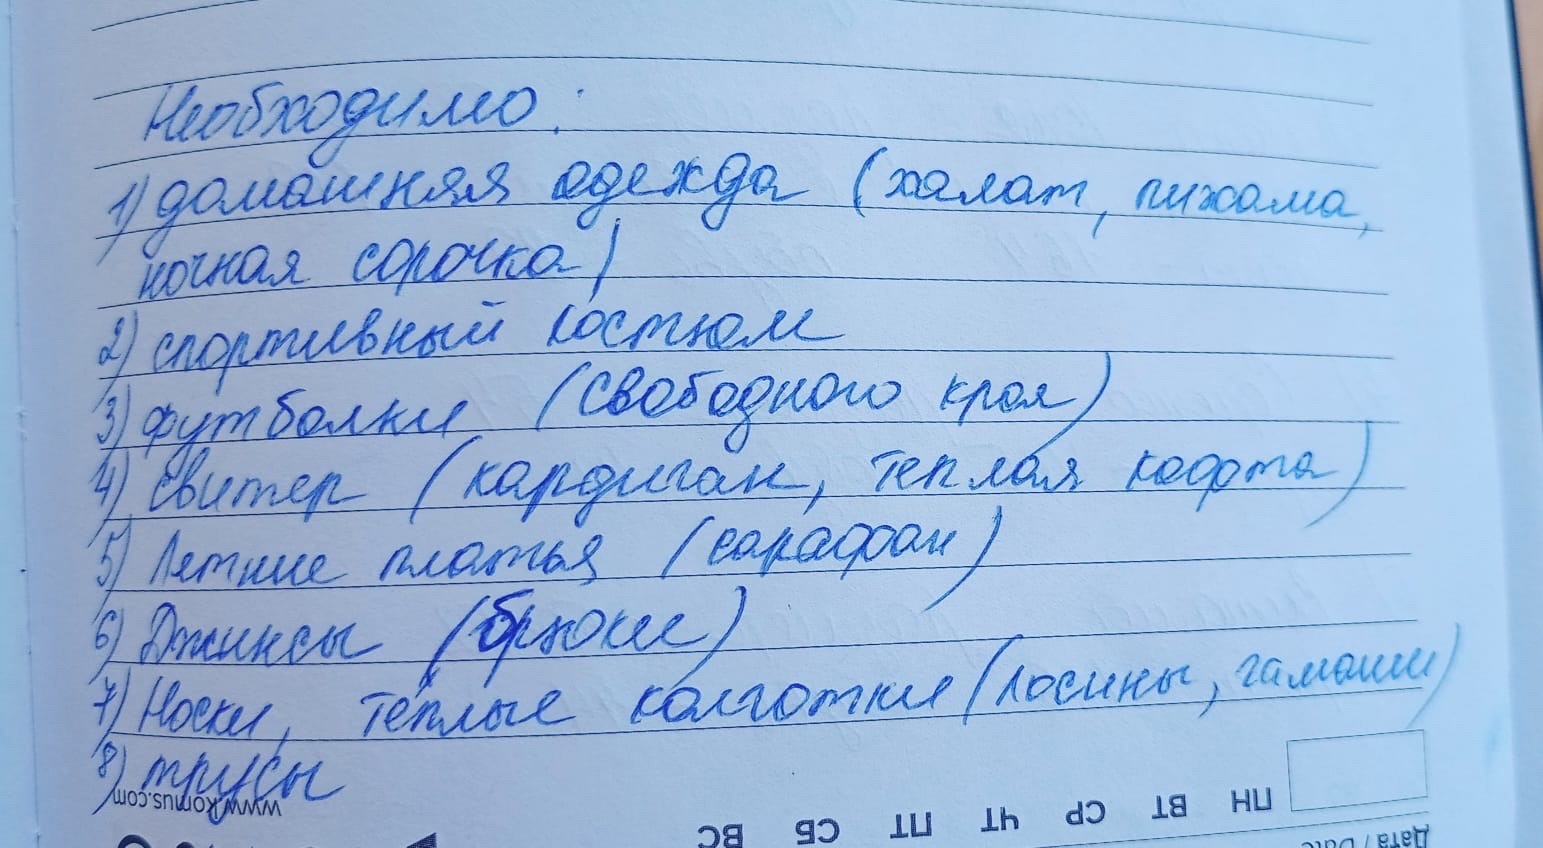 Необходимо:
1) домашняя одежда (халат, пижама,
ночная сорочка)
2) спортивный костюм
3) футболки (свободного кроя)
4) Свитер (кардиган, теплая кофта)
5) Летние платья (сарафан)
6) Джинсы (брюки)
7) Носки, тёплые колготки (лосины, гамаши)
8) трусы
www.komus.com
ПН ВТ СР ЧТ ПТ СБ ВС
Дата / Date